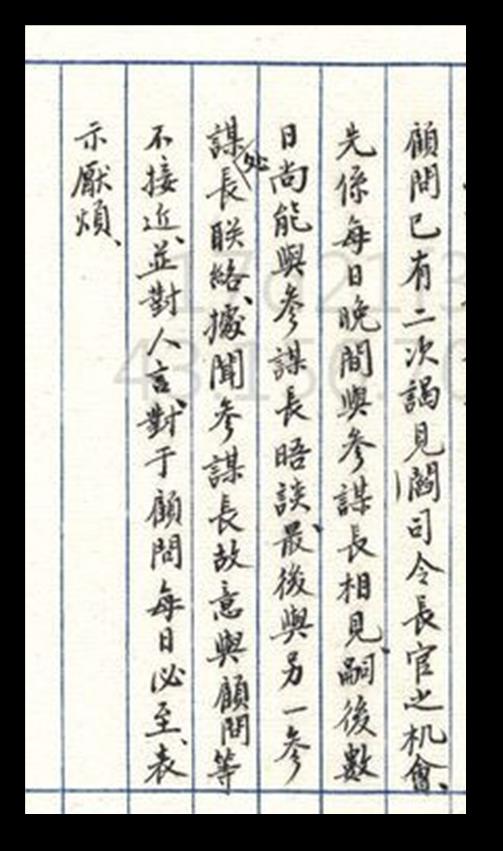 顧問已有二次謁見閻司令長官之机會、
先係每日晚間與參謀長相見、嗣後數
日尚能與參謀長晤談、最後與另一參
謀处長联絡、據聞參謀長故意與顧問等
不接近、並對人言、對于顧問每日必至、表
示厭煩、